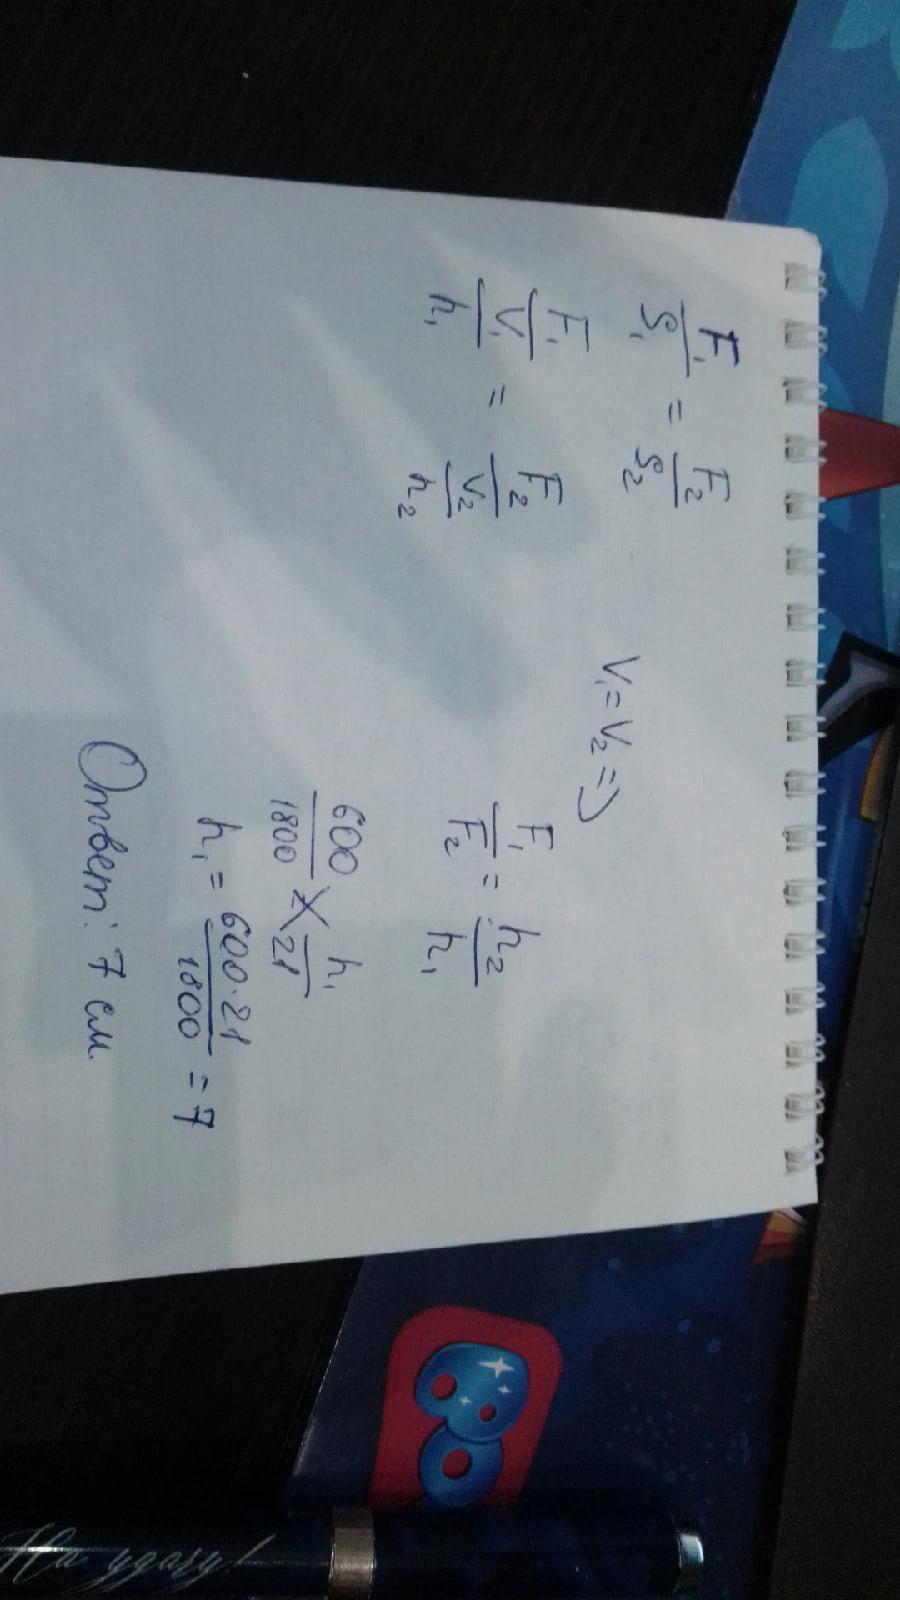 F₁/S₁ = F₂/S₂
V₁ = V₂ =>
F₁/(V₁/h₁) = F₂/(V₂/h₂)
F₁/F₂ = h₂/h₁
600/1800 × h₁/21
h₁ = 600·21/1800 = 7
Ответ: 7 см.
На удачу!